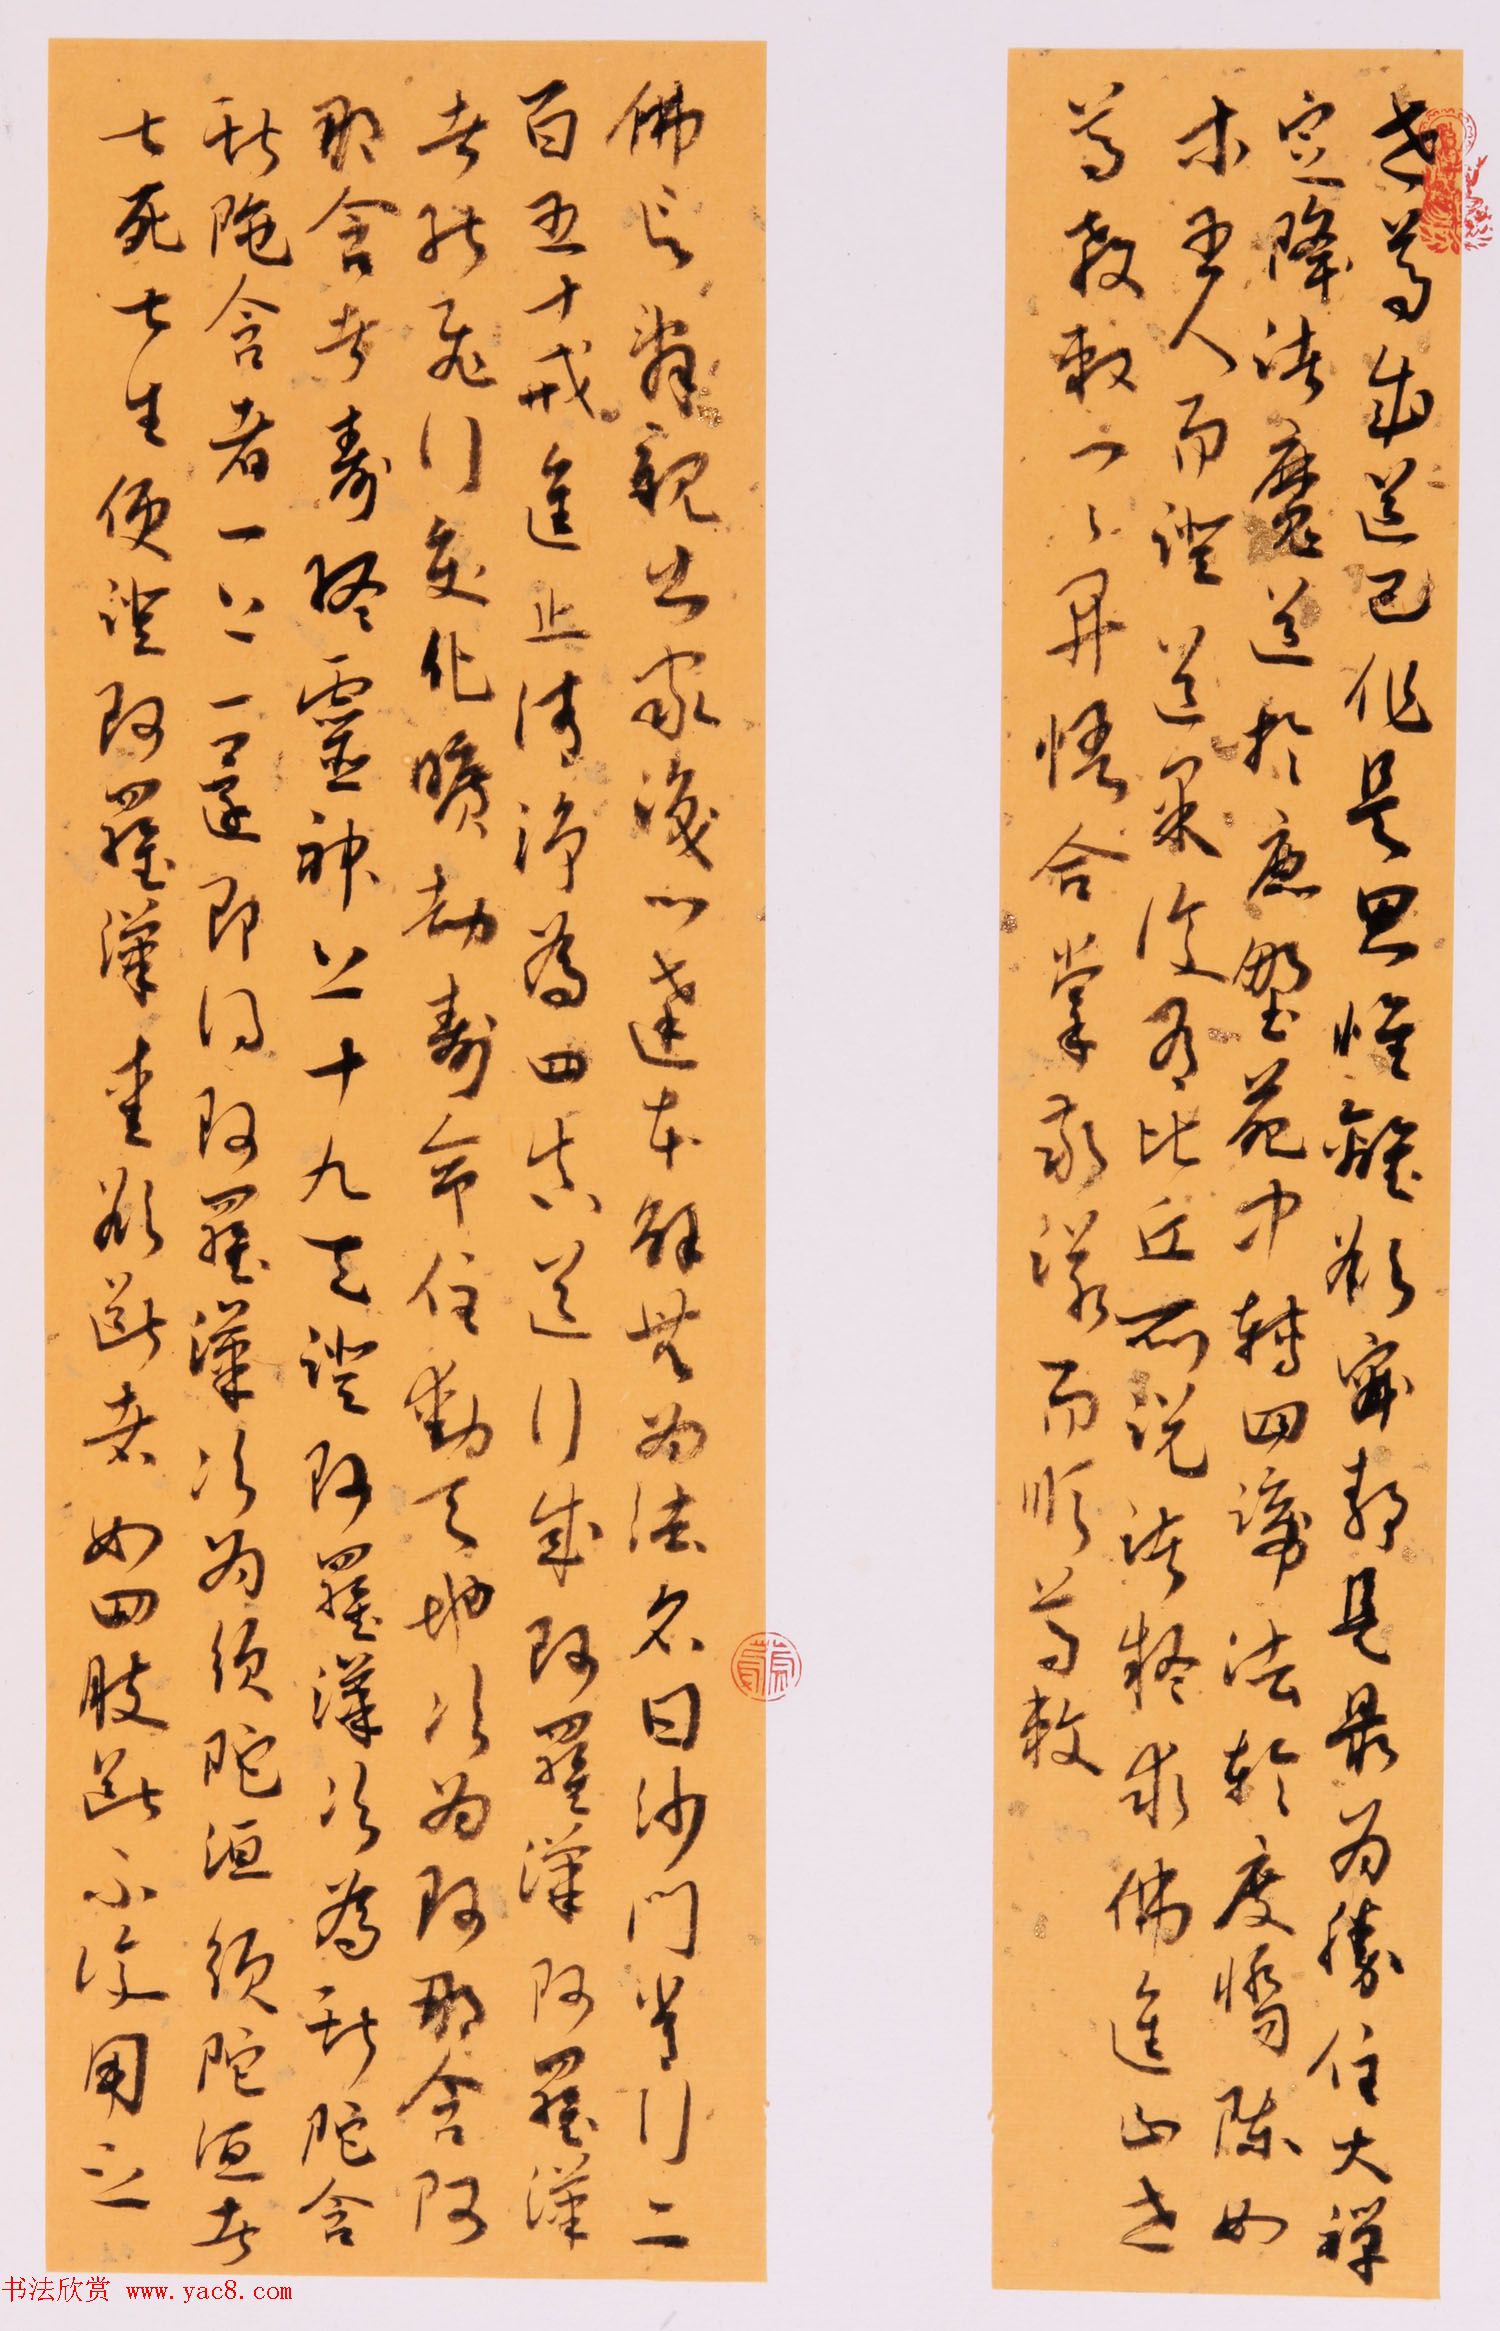 世尊成道已作是思惟離欲寂靜是最為勝住大禪
定降諸魔道於鹿野苑中轉四諦法輪度憍陳如
等五人而證道果復有比丘所說諸疑求佛進止世
尊教敕一一開悟合掌敬諾而順尊敕
佛言辭親出家識心達本解無為法名曰沙門常行二
百五十戒進止清淨為四真道行成阿羅漢阿羅漢
者能飛行變化曠劫壽命住動天地次為阿那含阿
那含者壽終靈神上十九天證阿羅漢次為斯陀含
斯陀含者一上一還即得阿羅漢次為須陀洹須陀洹者
七死七生便證阿羅漢愛欲斷者如四肢斷不復用之
书法欣赏 www.yac8.com